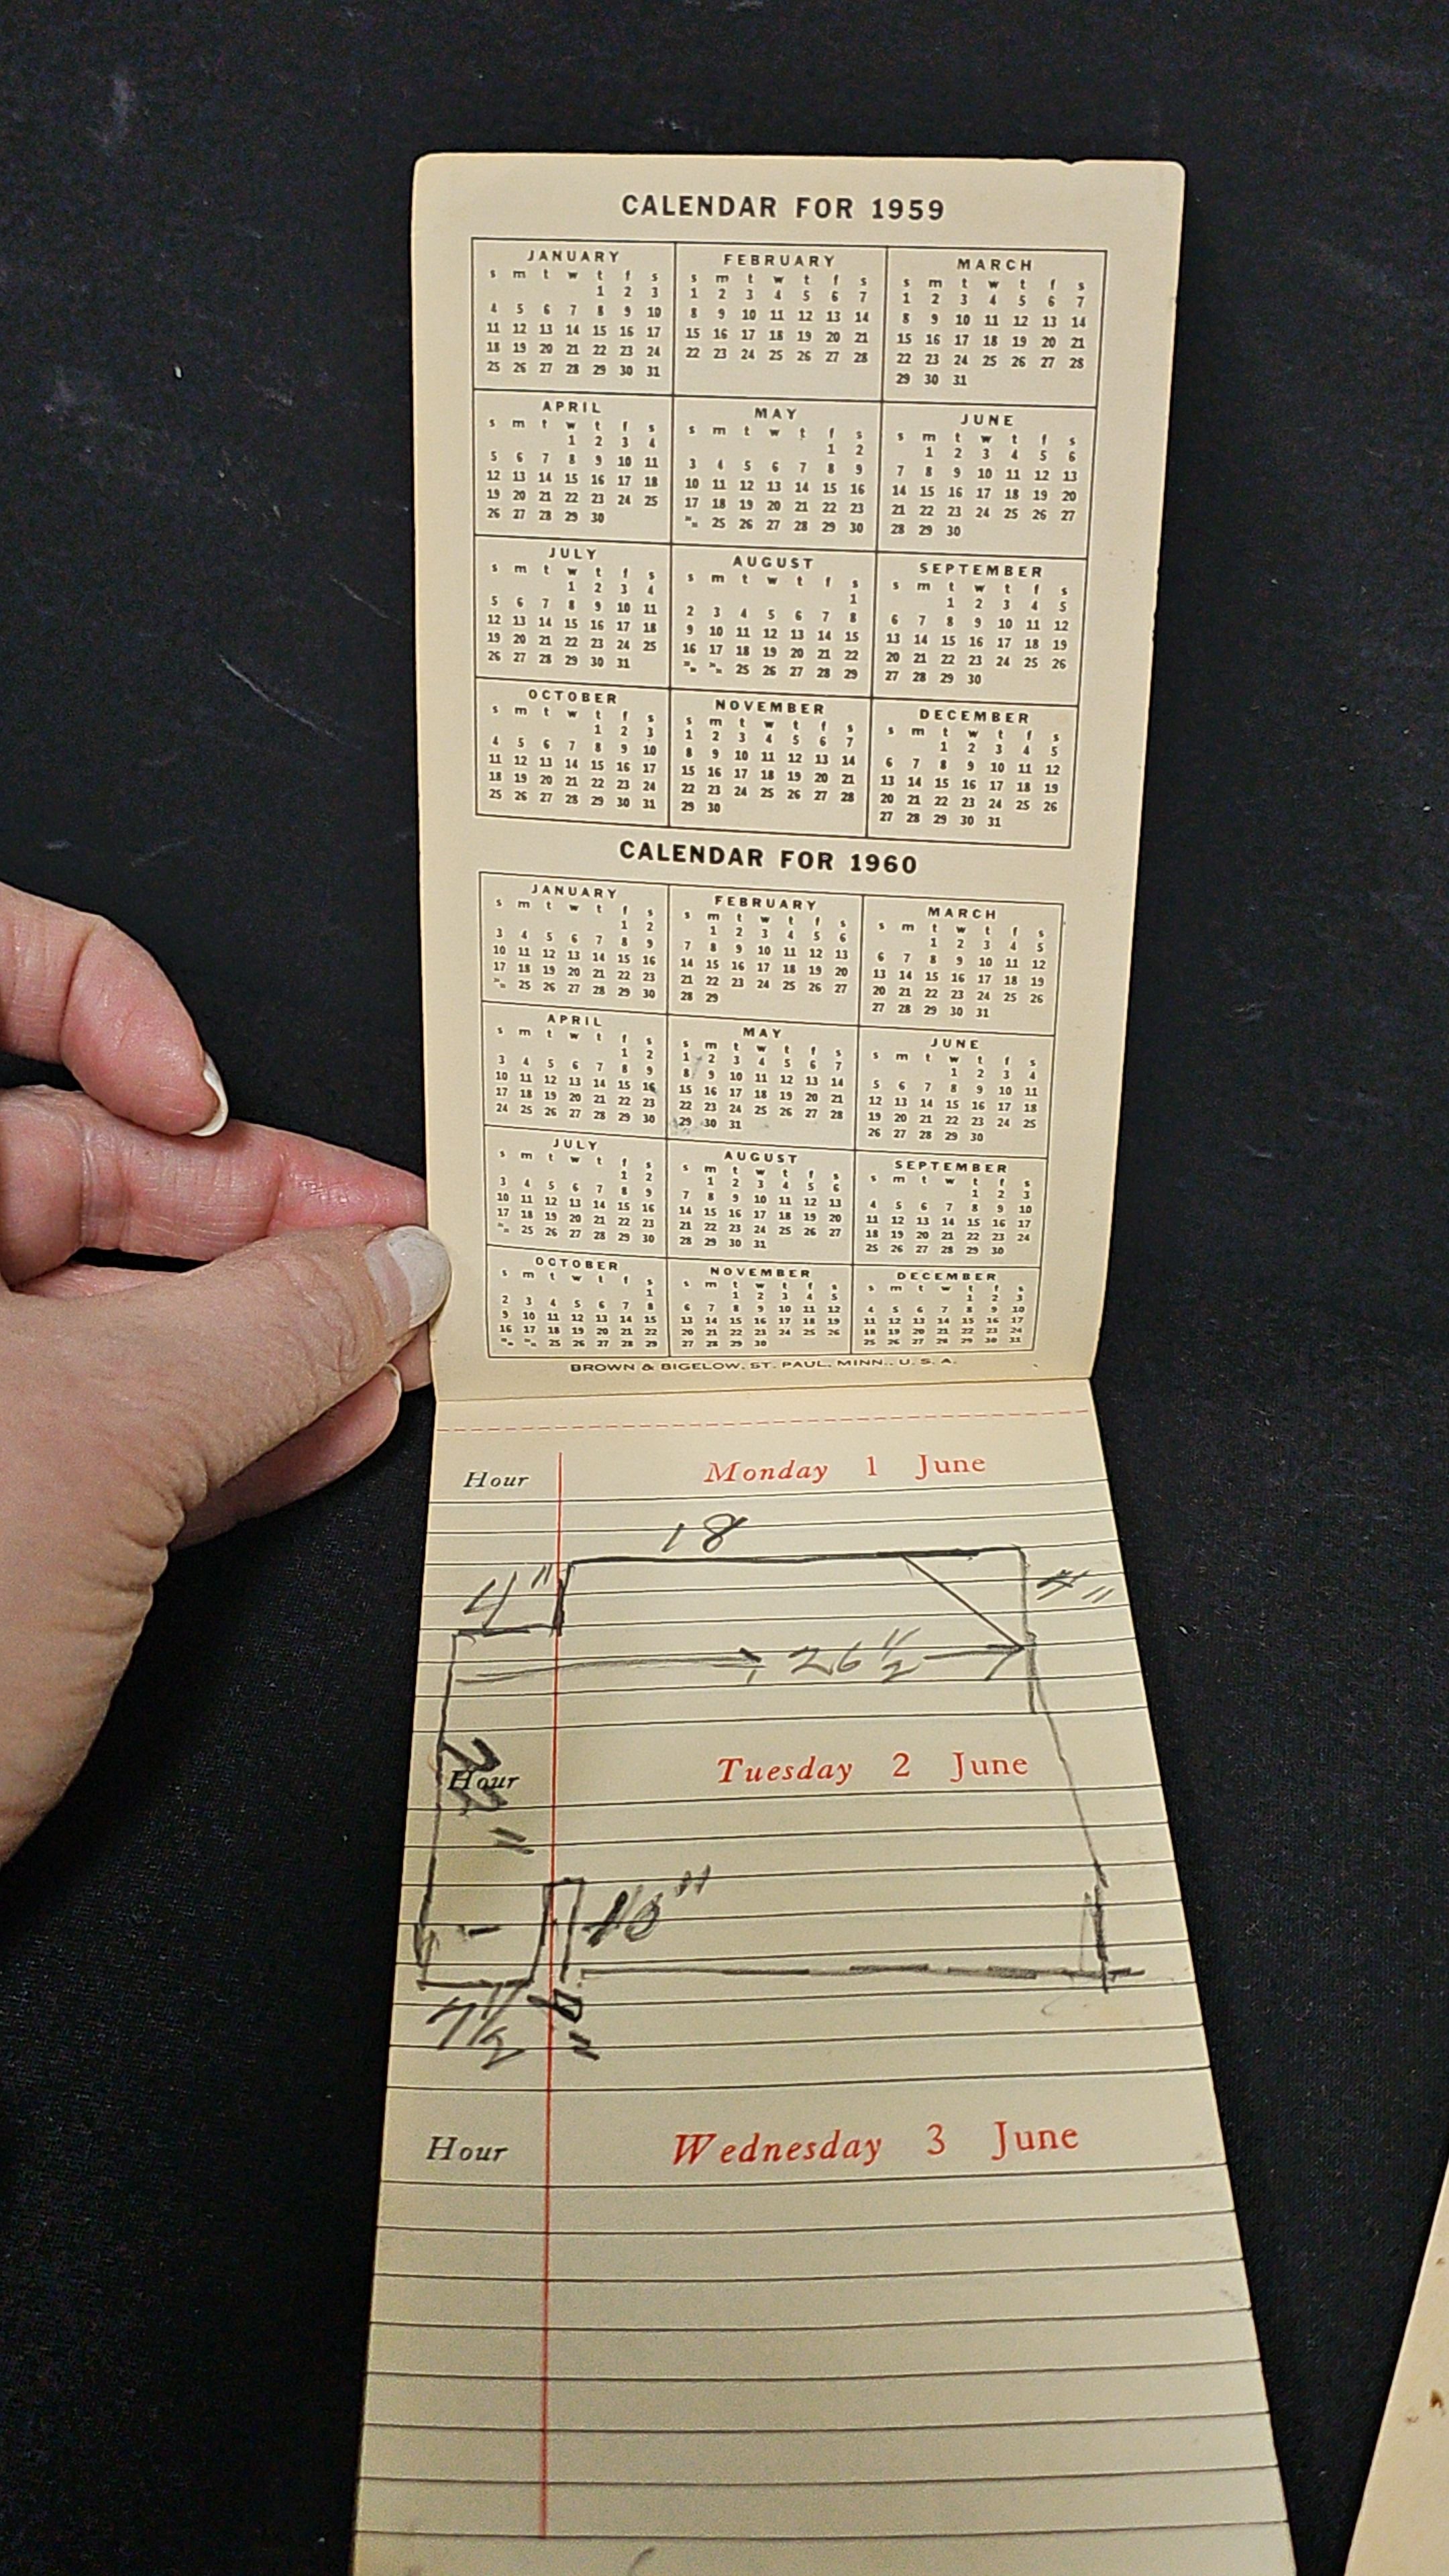 CALENDAR FOR 1959
JANUARY FEBRUARY MARCH
s m t w t f s s m t w t f s s m t w t f s
1 2 3 1 2 3 4 5 6 7 1 2 3 4 5 6 7
4 5 6 7 8 9 10 8 9 10 11 12 13 14 8 9 10 11 12 13 14
11 12 13 14 15 16 17 15 16 17 18 19 20 21 15 16 17 18 19 20 21
18 19 20 21 22 23 24 22 23 24 25 26 27 28 22 23 24 25 26 27 28
25 26 27 28 29 30 31 29 30 31
APRIL MAY JUNE
s m t w t f s s m t w t f s s m t w t f s
1 2 3 4 1 2 1 2 3 4 5 6
5 6 7 8 9 10 11 3 4 5 6 7 8 9 7 8 9 10 11 12 13
12 13 14 15 16 17 18 10 11 12 13 14 15 16 14 15 16 17 18 19 20
19 20 21 22 23 24 25 17 18 19 20 21 22 23 21 22 23 24 25 26 27
26 27 28 29 30 25 26 27 28 29 30 28 29 30
JULY AUGUST SEPTEMBER
s m t w t f s s m t w t f s s m t w t f s
1 2 3 4 1 1 2 3 4 5
5 6 7 8 9 10 11 2 3 4 5 6 7 8 6 7 8 9 10 11 12
12 13 14 15 16 17 18 9 10 11 12 13 14 15 13 14 15 16 17 18 19
19 20 21 22 23 24 25 16 17 18 19 20 21 22 20 21 22 23 24 25 26
26 27 28 29 30 31 25 26 27 28 29 27 28 29 30
OCTOBER NOVEMBER DECEMBER
s m t w t f s s m t w t f s s m t w t f s
1 2 3 1 2 3 4 5 6 7 1 2 3 4 5
4 5 6 7 8 9 10 8 9 10 11 12 13 14 6 7 8 9 10 11 12
11 12 13 14 15 16 17 15 16 17 18 19 20 21 13 14 15 16 17 18 19
18 19 20 21 22 23 24 22 23 24 25 26 27 28 20 21 22 23 24 25 26
25 26 27 28 29 30 31 29 30 27 28 29 30 31
CALENDAR FOR 1960
JANUARY FEBRUARY MARCH
s m t w t f s s m t w t f s s m t w t f s
1 2 1 2 3 4 5 6 1 2 3 4 5
3 4 5 6 7 8 9 7 8 9 10 11 12 13 6 7 8 9 10 11 12
10 11 12 13 14 15 16 14 15 16 17 18 19 20 13 14 15 16 17 18 19
17 18 19 20 21 22 23 21 22 23 24 25 26 27 20 21 22 23 24 25 26
25 26 27 28 29 30 28 29 27 28 29 30 31
APRIL MAY JUNE
s m t w t f s s m t w t f s s m t w t f s
1 2 1 2 3 4 5 6 7 1 2 3 4
3 4 5 6 7 8 9 8 9 10 11 12 13 14 5 6 7 8 9 10 11
10 11 12 13 14 15 16 15 16 17 18 19 20 21 12 13 14 15 16 17 18
17 18 19 20 21 22 23 22 23 24 25 26 27 28 19 20 21 22 23 24 25
24 25 26 27 28 29 30 29 30 31 26 27 28 29 30
JULY AUGUST SEPTEMBER
s m t w t f s s m t w t f s s m t w t f s
1 2 1 2 3 4 5 6 1 2 3
3 4 5 6 7 8 9 7 8 9 10 11 12 13 4 5 6 7 8 9 10
10 11 12 13 14 15 16 14 15 16 17 18 19 20 11 12 13 14 15 16 17
17 18 19 20 21 22 23 21 22 23 24 25 26 27 18 19 20 21 22 23 24
25 26 27 28 29 30 28 29 30 31 25 26 27 28 29 30
OCTOBER NOVEMBER DECEMBER
s m t w t f s s m t w t f s s m t w t f s
1 1 2 3 4 5 1 2 3
2 3 4 5 6 7 8 6 7 8 9 10 11 12 4 5 6 7 8 9 10
9 10 11 12 13 14 15 13 14 15 16 17 18 19 11 12 13 14 15 16 17
16 17 18 19 20 21 22 20 21 22 23 24 25 26 18 19 20 21 22 23 24
25 26 27 28 29 27 28 29 30 25 26 27 28 29 30 31
BROWN & BIGELOW, ST. PAUL, MINN., U. S. A.
Hour Monday 1 June
18
4" 4"
26 1/2
Hour Tuesday 2 June
10"
7 1/2
Hour Wednesday 3 June